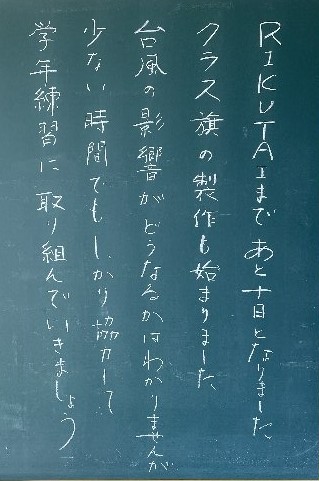 RIKUTAIまであと十日となりました
クラス旗の製作も始まりました
台風の影響がどうなるかはわかりませんが
少ない時間でもしっかり協力して
学年練習に取り組んでいきましょう